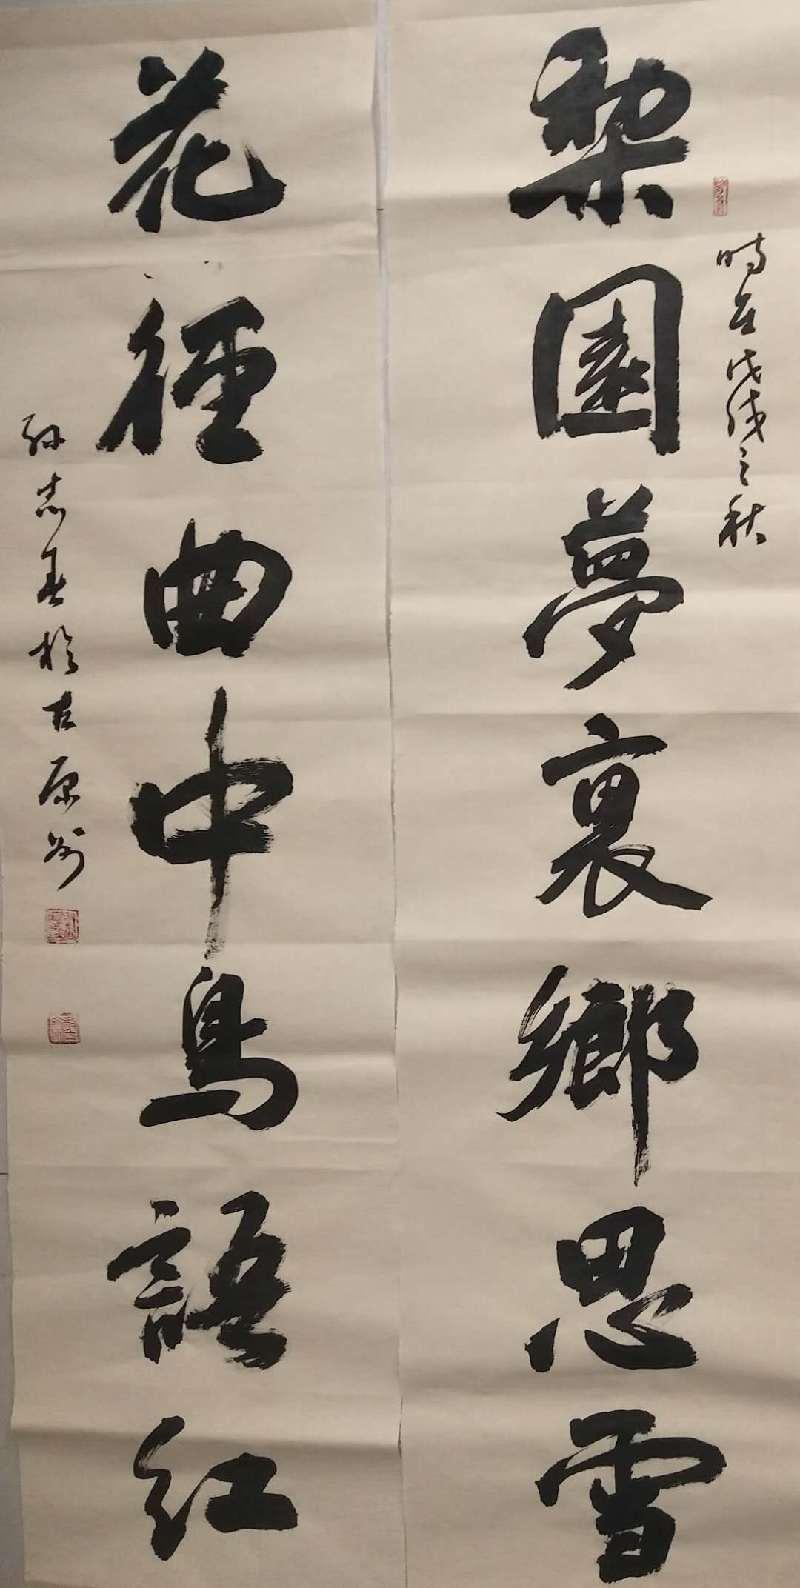 時在戊戌之秋
梨園夢裏鄉思雪
花徑曲中鳥語紅
孫志春於古原州